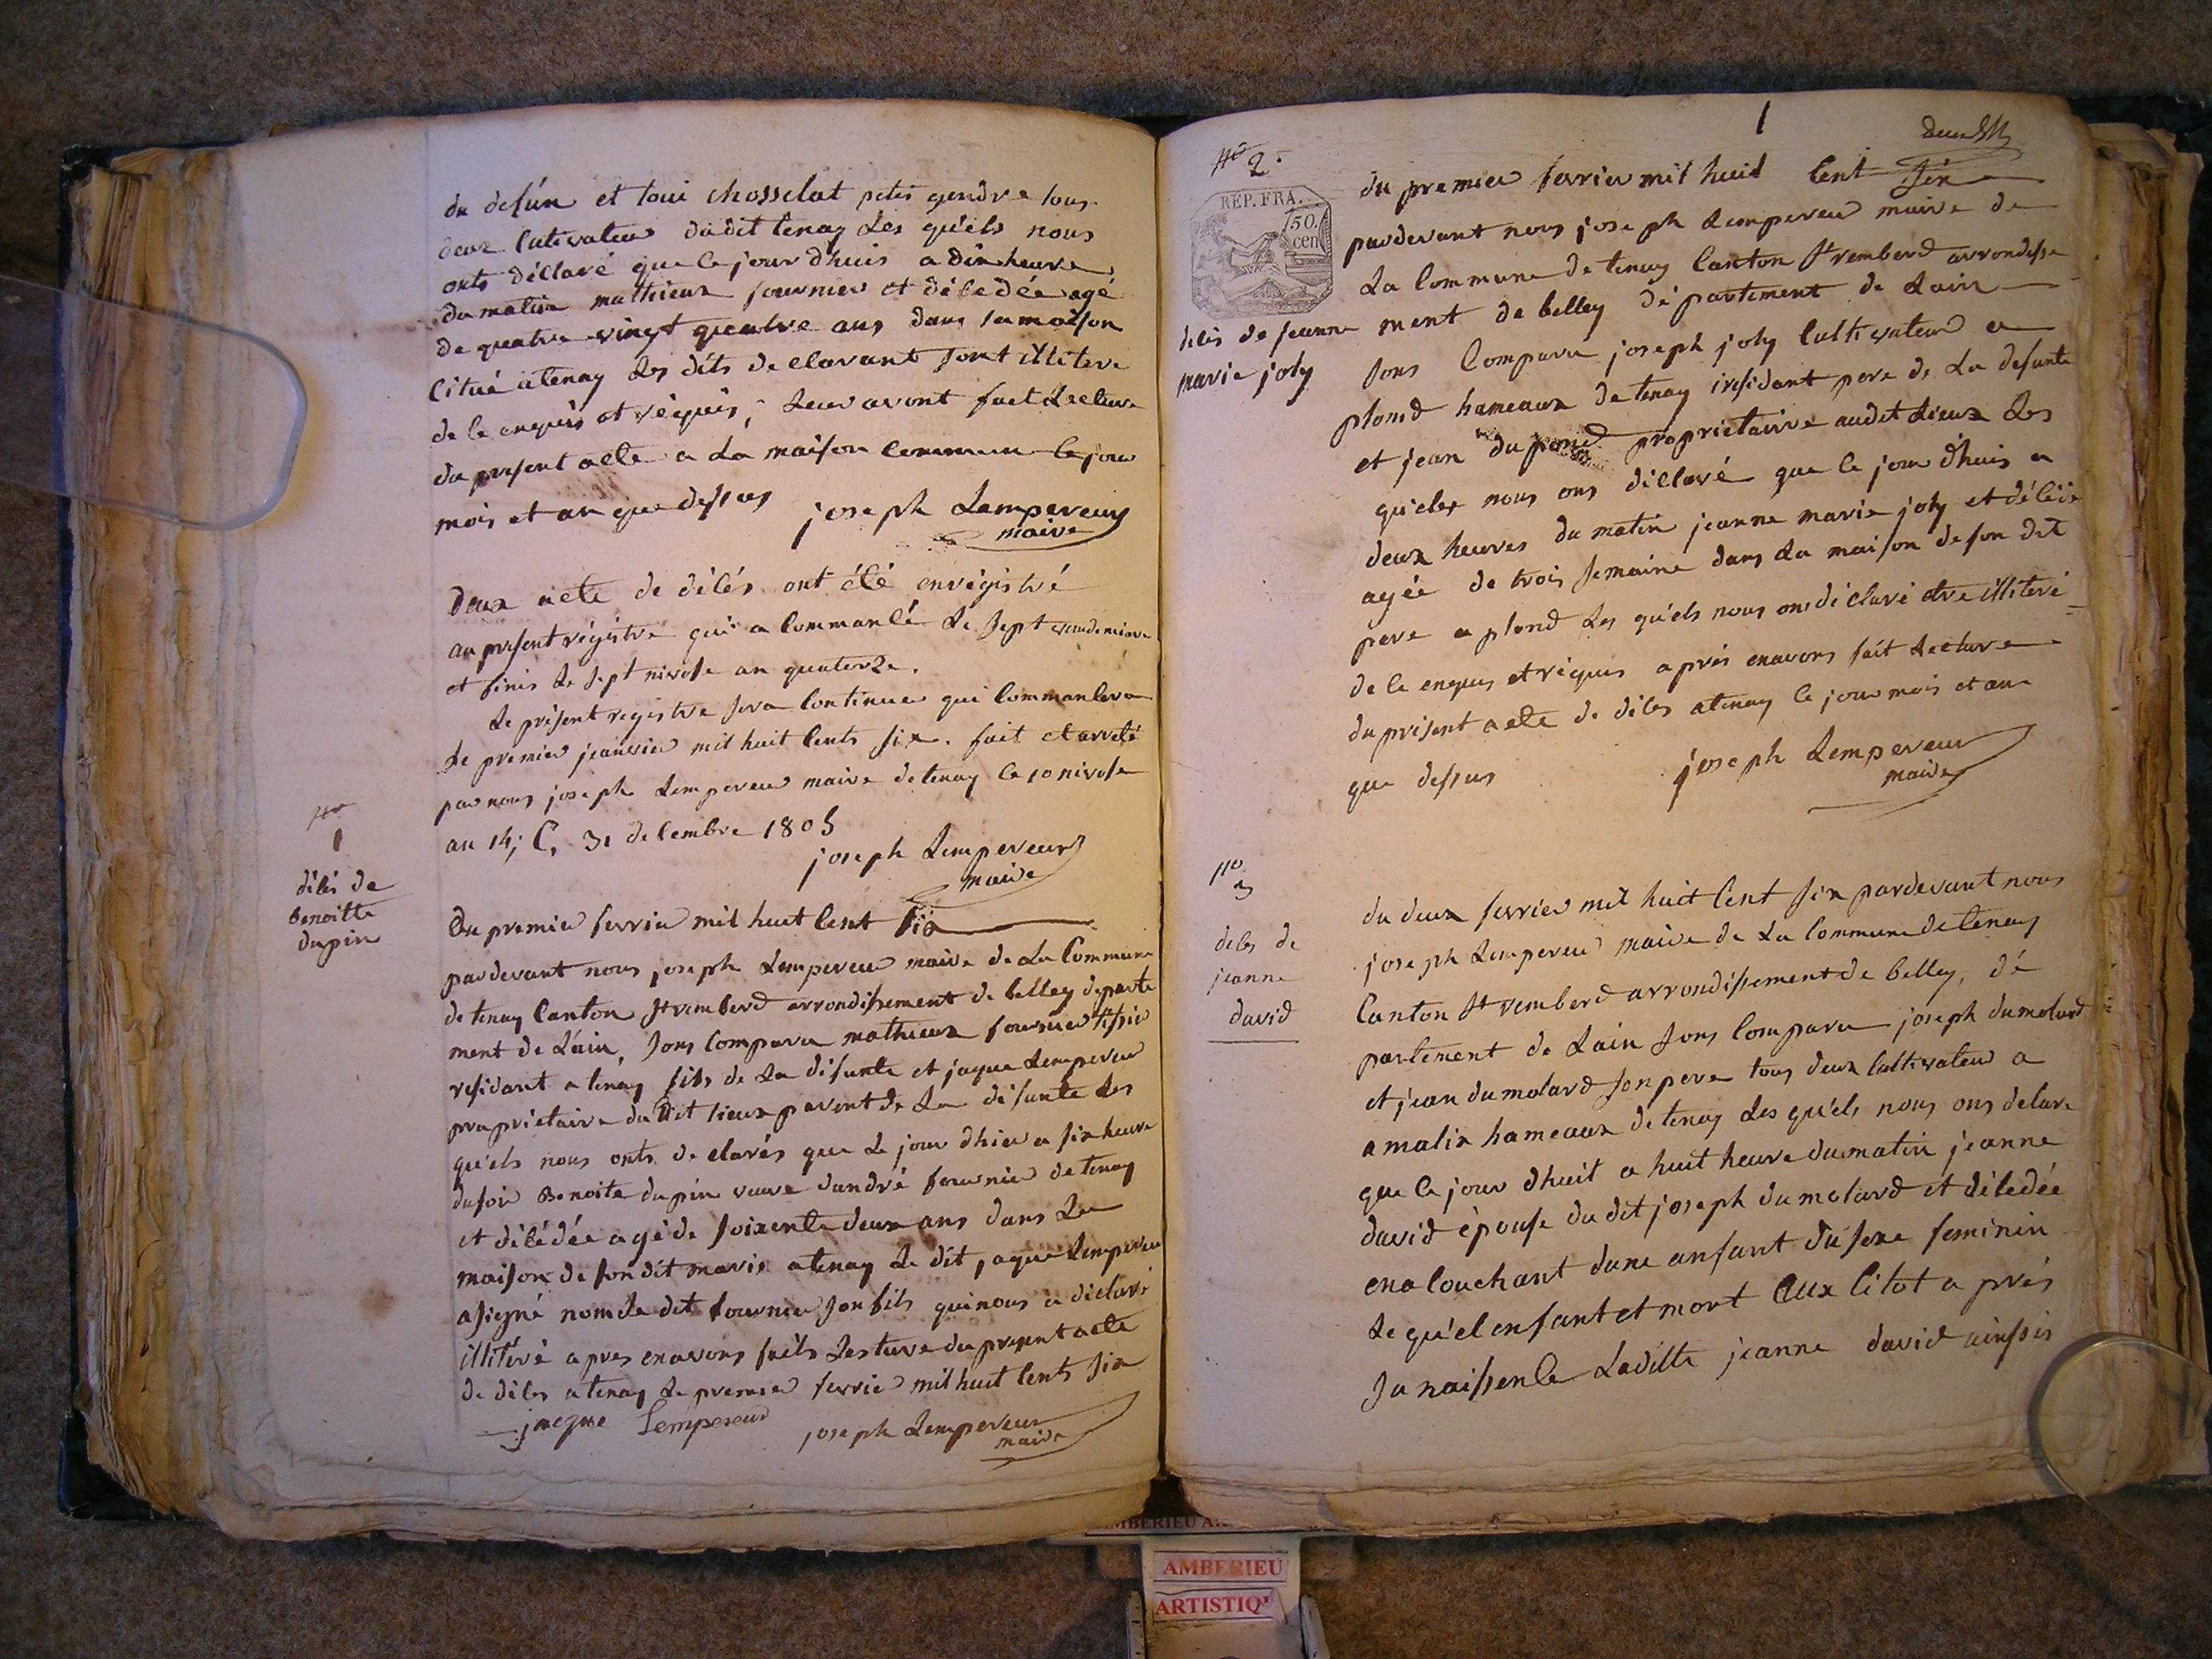 du defún et loui chosselat petis gendre tous
deux Cultivateur dudit tenay Les qu'els nous
onts déclaré que le jour dhuis a dix heure
du matin mathieux fournier et décedée agé
de quatre vingt quatre ans dans sa maison
Citué atenay Les dits declarant sont illiteré
de le enquis et réquis, Leur avont fait Lecture
du present acte a La maison Commun le jour
mois et an que dessus joseph Lempereur
maire
deux acte de décés ont été enrégistré
au present régistre qui a Commancé Le Sept vendemiare
et finis Le Sept nivose an quatorze.
Le présent registre Sera Continuer qui Commancera
Le premier jeanvier mil huit Cents six. fait et arreté
par nous joseph Lempereur maire de tenay le 10 nivose
an 14; C, 31 decembre 1805
joseph Lempereur
maire
No
1
décés de
benoitte
dupin
du premier fevrier mil huit Cent Six
pardevant nous joseph Lempereur maire de La Commune
de tenay Canton St remberd arrondissement de belley departe
ment de Láin, Sons Comparu mathieux fournier tissié
residant a tenay fils de La difunte et jaque Lempereur
propriétaire du dit lieux parent de La difunte Les
qu'els nous onts declarés que Le jour dhier a six heure
du soir Benoite dupin veuve dandré fournier de tenay
et décédée agé de soixente deux ans dans La
maison de son dit marix atenay Le dit jaque Lempereur
a signé non Le dit fournier son fils qui nous a déclaré
illitéré apres en avons faits Lecture du present acte
de déces a tenay Le premier fevrier mil huit Cents Six
jacque Lempereur joseph Lempereur
maire
1
No 2.
REP. FRA.
50.
cen
décés de jeanne
marie joly
du premier fevrier mil huid Cent Six
pardevant nous joseph Lempereur maire de
La Commune de tenay Canton St remberd arrondisse
ment de belley département de Lain
Sons Comparu joseph joly Cultivateur a
plomd hameaux de tenay i residant pere de La defunte
et jean dupond propriétaire audit Lieux Les
quieles nous ons déclaré que le jour dhuis a
deux heures du matin jeanne marie joly et décédé
agée de trois Semaine dans La maison de son dit
pere a plond Les qu'els nous ons déclaré etre illiteré
de le enquis et réquis aprés en avons fait Lecture
du présent acte de déces atenay le jour mois et an
que dessus joseph Lempereur
maire
No
3
deces de
jeanne
david
du deux fevrier mil huit Cent Six pardevant nous
joseph Lempereur maire de La Commune de tenay
Canton St remberd arrondissement de belley, dé
partement de Lain Sons Comparu joseph dumolard
et jean dumolard son pere tous deux Cultivateur a
a malix hameaux de tenay Les qu'els nous ons delare
que le jour dhuit a huit heure du matin jeanne
david épouse du dit joseph du molard et décedée
en acouchant dune anfant du sexe feminin
Le qu'el enfant et mort Aux Citot a prés
Sa naissence Laditte jeanne david ainssis
AMBERIEU
AMBERIEU
ARTISTIQ